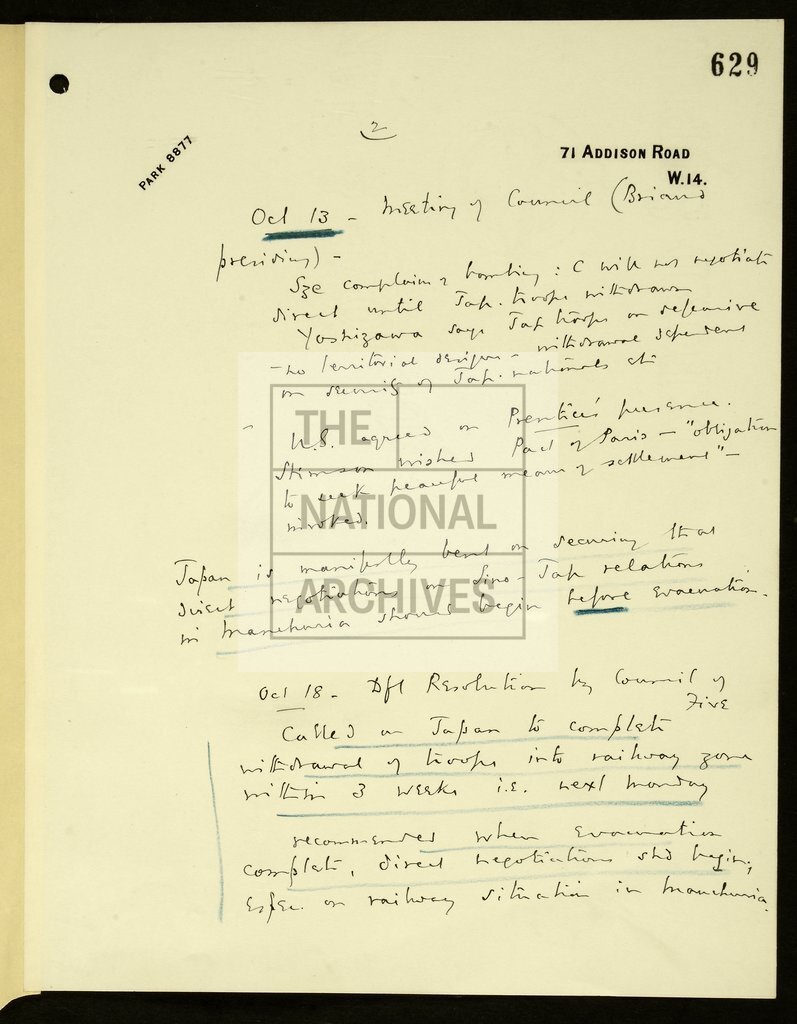 629
2
PARK 8877
71 ADDISON ROAD
W.14.
Oct 13 - Meeting of Council (Briand
presiding) -
Sze complains of bombing : C will not negotiate
direct until Jap. troops withdrawn
Yoshizawa says Jap troops on defensive
- no territorial designs - withdrawal dependent
on security of Jap. nationals etc
U.S. agreed on Prentice's presence.
Stimson wished Pact of Paris - "obligation
to seek peaceful means of settlement" -
invoked.
Japan is manifestly bent on securing that
direct negotiations on Sino-Jap relations
in Manchuria should begin before evacuation.
Oct 18 - Dft Resolution by Council of
Five
Called on Japan to complete
withdrawal of troops into railway zone
within 3 weeks i.e. next Monday
recommended when evacuation
complete, direct negotiations shd begin,
espec. on railway situation in Manchuria.
THE
NATIONAL
ARCHIVES